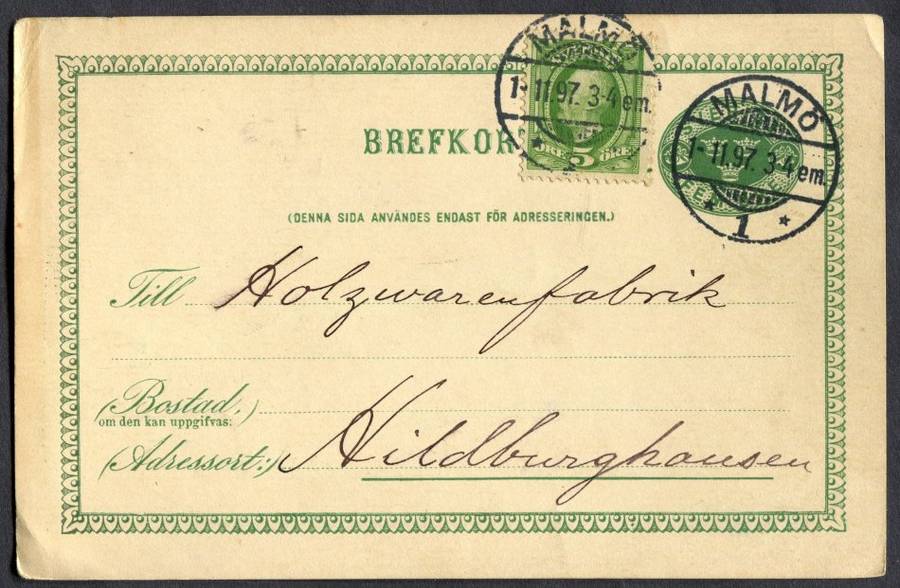 MALMÖ
1-11.97. 3-4 em.
5
ÖRE ÖRE
MALMÖ
1-11.97. 3-4 em.
1
BREFKOR
(DENNA SIDA ANVÄNDES ENDAST FÖR ADRESSERINGEN.)
Till Holzwarenfabrik
(Bostad,)
om den kan uppgifvas:
(Adressort:) Hildburghausen